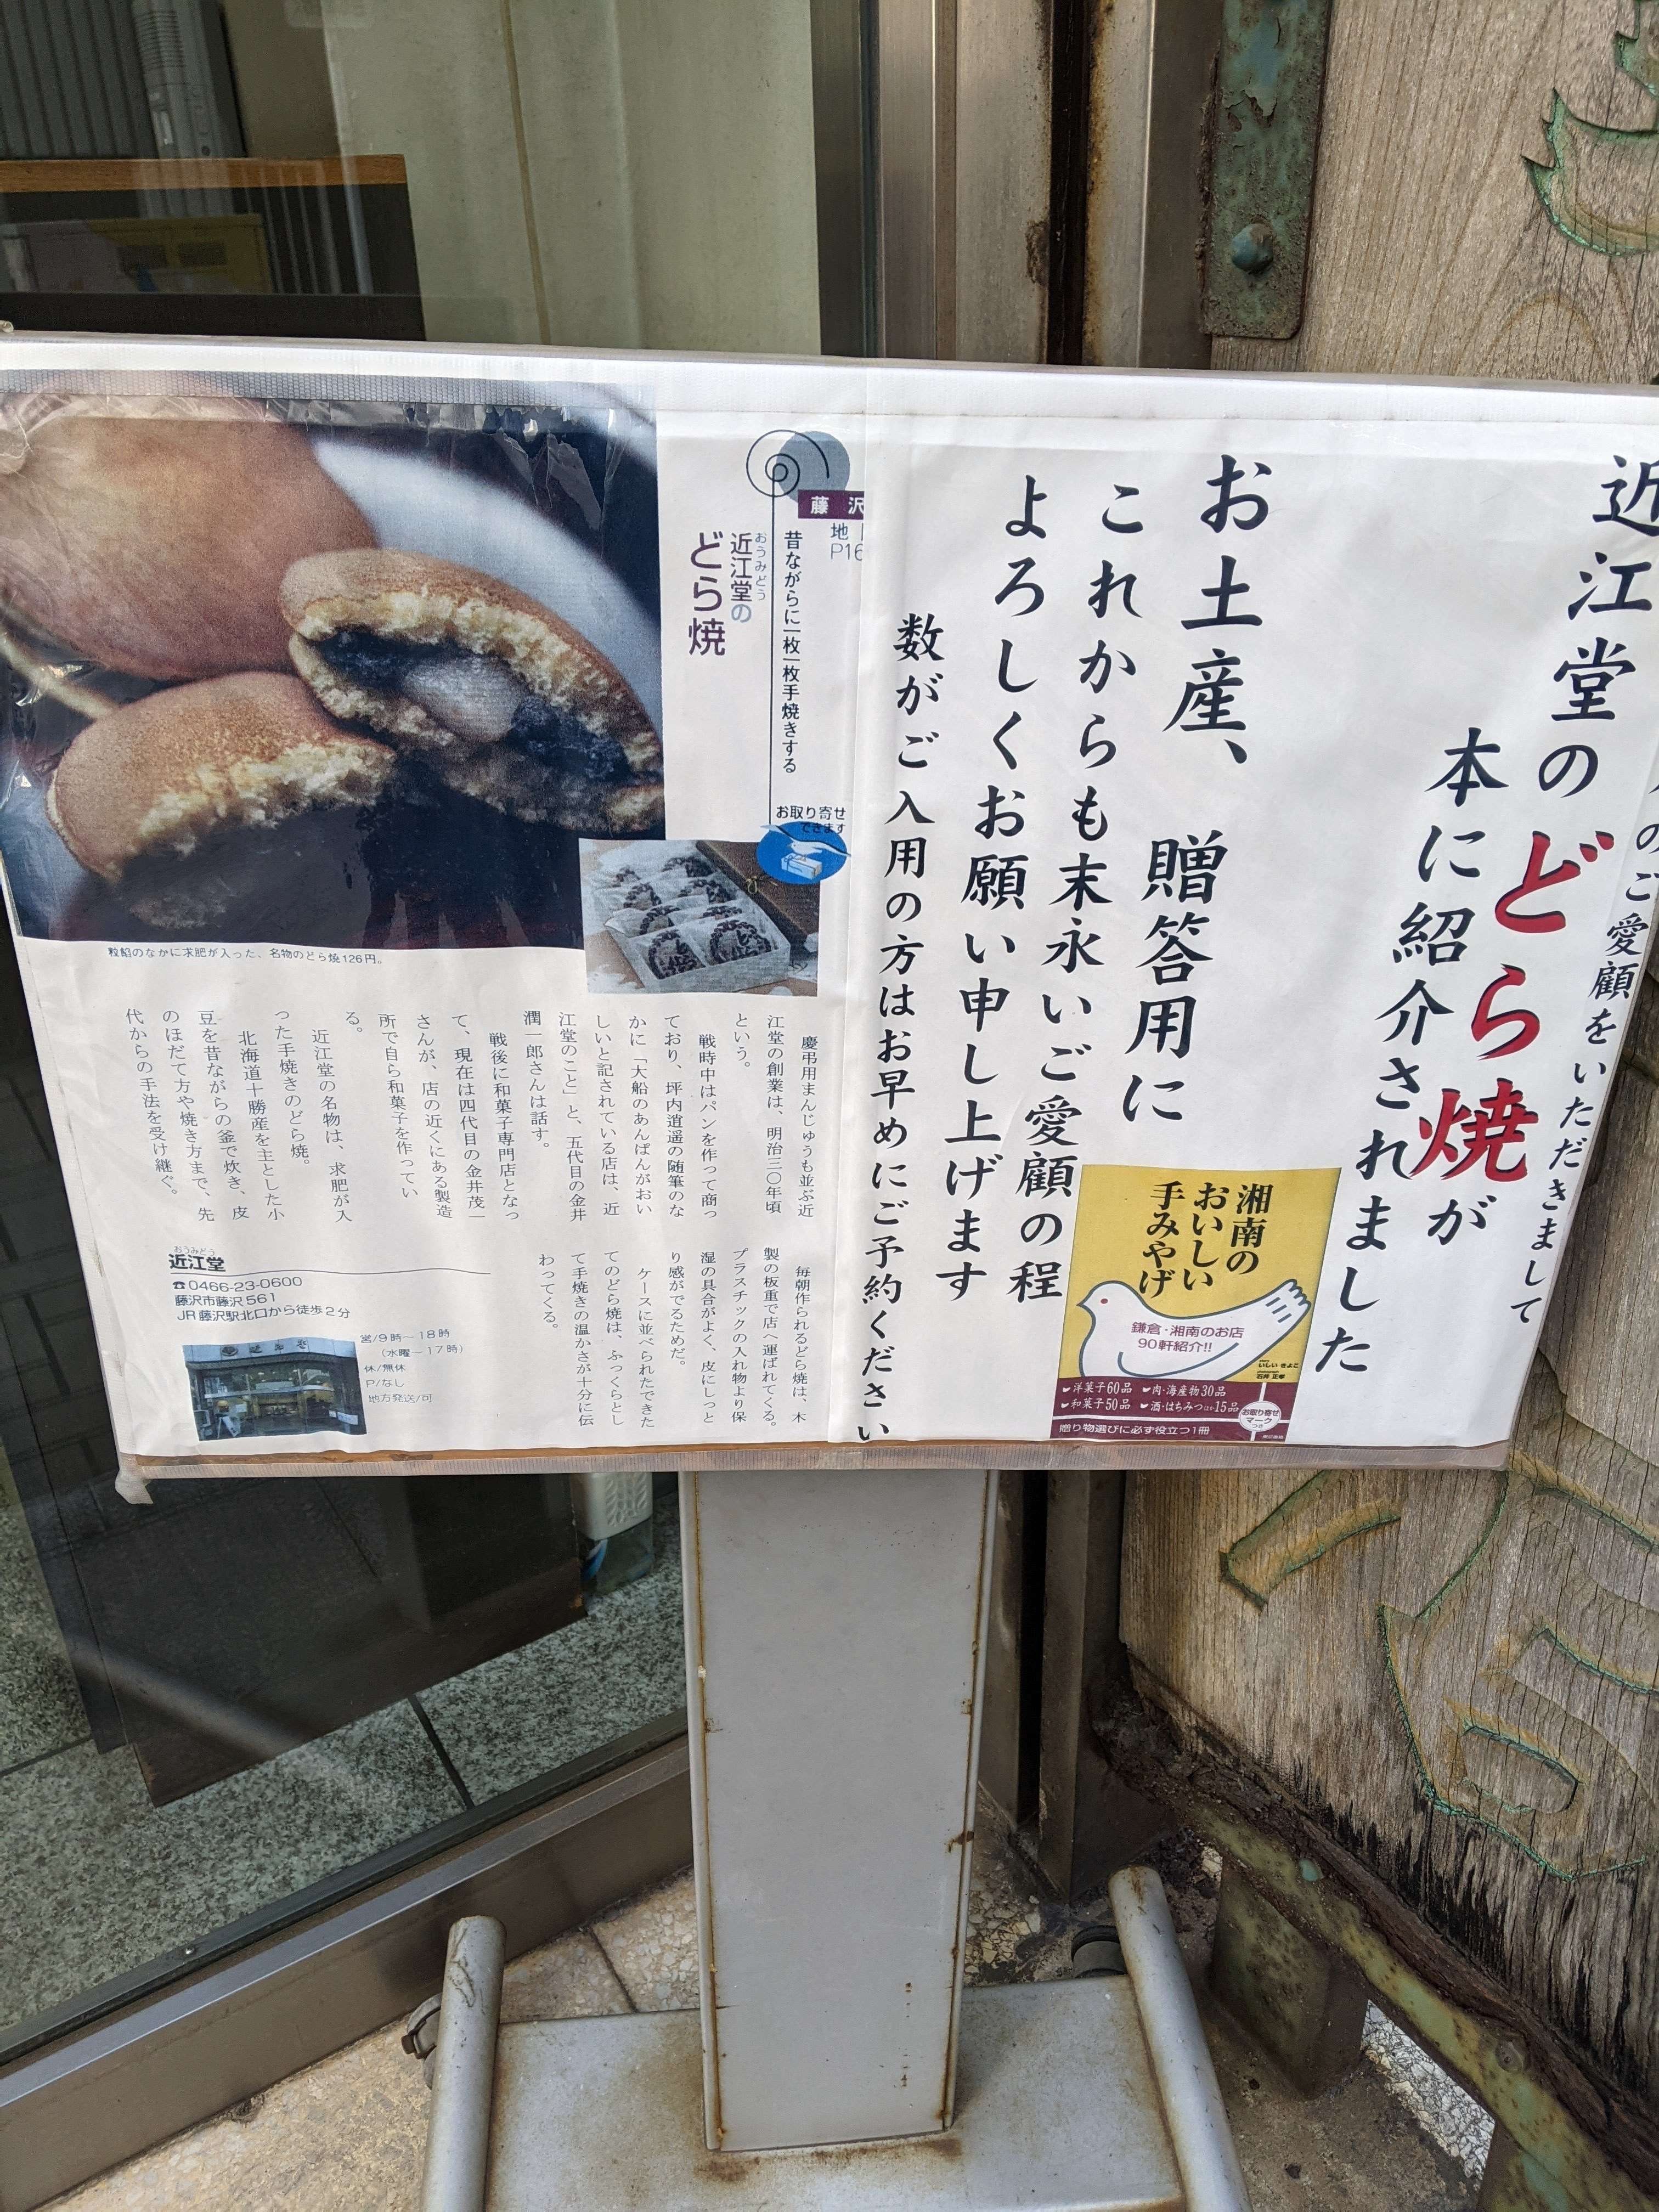 のご愛顧をいただきまして
近江堂のどら焼が
本に紹介されました
お土産、贈答用に
これからも末永いご愛顧の程
よろしくお願い申し上げます
数がご入用の方はお早めにご予約ください
湘南の
おいしい
手みやげ
鎌倉・湘南のお店
90軒紹介!!
いしい きよこ
石井 正孝
洋菓子60品
肉・海産物30品
和菓子50品
酒・はちみつほか15品
お取り寄せ
マーク
つき
贈り物選びに必ず役立つ1冊
藤沢
地
P16
昔ながらに一枚一枚手焼きする
おうみどう
近江堂の
どら焼
お取り寄せ
できます
粒餡のなかに求肥が入った、名物のどら焼126円。
慶弔用まんじゅうも並ぶ近
江堂の創業は、明治三〇年頃
という。
戦時中はパンを作って商っ
ており、坪内逍遥の随筆のな
かに「大船のあんぱんがおい
しいと記されている店は、近
江堂のこと」と、五代目の金井
潤一郎さんは話す。
戦後に和菓子専門店となっ
て、現在は四代目の金井茂一
さんが、店の近くにある製造
所で自ら和菓子を作ってい
る。
近江堂の名物は、求肥が入
った手焼きのどら焼。
北海道十勝産を主とした小
豆を昔ながらの釜で炊き、皮
のほだて方や焼き方まで、先
代からの手法を受け継ぐ。
毎朝作られるどら焼は、木
製の板重で店へ運ばれてくる。
プラスチックの入れ物より保
湿の具合がよく、皮にしっと
り感がでるためだ。
ケースに並べられたできた
てのどら焼は、ふっくらとし
て手焼きの温かさが十分に伝
わってくる。
おうみどう
近江堂
☎0466-23-0600
藤沢市藤沢561
JR藤沢駅北口から徒歩2分
営/9時〜18時
（水曜〜17時）
休/無休
P/なし
地方発送/可